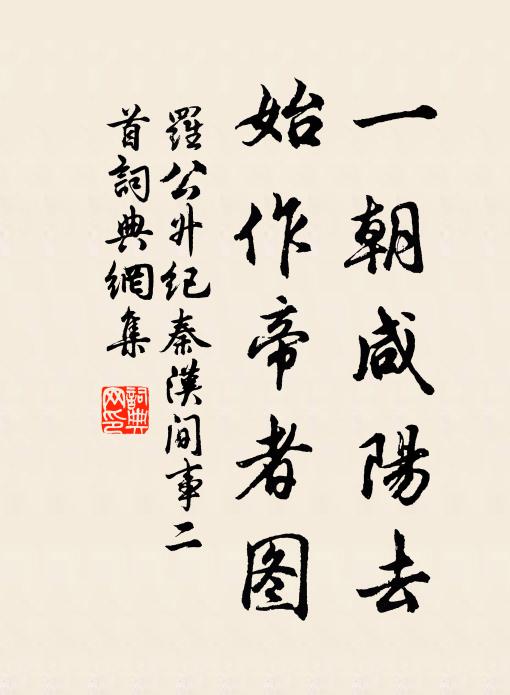 一朝咸陽去
始作帝者图
羅公外纪秦漢间事二
首詞典網集
詞典网印